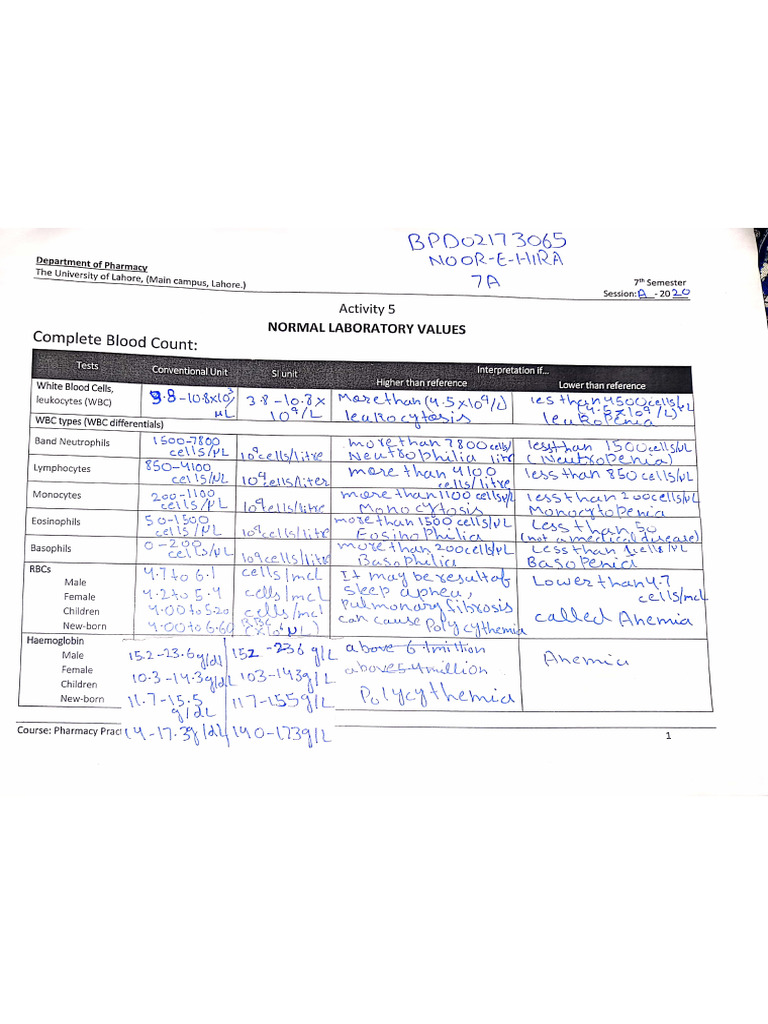 BPD02173065
NOOR-E-HIRA
7A
Department of Pharmacy
The University of Lahore, (Main campus, Lahore.)
7th Semester
Session: A - 2020
Activity 5
NORMAL LABORATORY VALUES
Complete Blood Count:
Tests Conventional Unit SI unit Interpretation if...
Higher than reference Lower than reference
White Blood Cells, leukocytes (WBC) 3.8-10.8x10³ μL 3.8-10.8x 10⁹/L More than (4.5x10⁹/L) leukocytosis les than 4500 cells/μL (4.5x10⁹/L) leukopenia
WBC types (WBC differentials)
Band Neutrophils 1500-7800 cells/μL 10⁹cells/litre more than 7800 cells/ Neutrophilia litre less than 1500 cells/μL (Neutropenia)
Lymphocytes 850-4100 cells/μL 10⁹cells/liter more than 4100 cells/litre less than 850 cells/μL
Monocytes 200-1100 cells/μL 10⁹cells/litre more than 1100 cells/μL Monocytosis less than 200cells/μL Monocytopenia
Eosinophils 50-1500 cells/μL 10⁹cells/litre more than 1500 cells/μL Eosinophilia Less than 50 (not a medical disease)
Basophils 0-200 cells/μL 10⁹cells/litre more than 200cells/μL Basophilia Less than 1 cells/μL Basopenia
RBCs
Male 4.7 to 6.1 cells/mcl It may be result of
Female 4.2 to 5.4 cells/mcl sleep apnea, Lower than 4.7 cells/mcl
Children 4.00 to 5.20 cells/mcl pulmonary fibrosis
New-born 4.00 to 6.60 can cause Polycythemia called Anemia
Haemoglobin
Male 15.2-23.6g/dl 152-236 g/L above 6.1million Anemia
Female 10.3-14.3g/dL 103-143g/L above 5.4million
Children
New-born 11.7-15.5 g/dL 117-155g/L Polycythemia
14-17.3g/dL 140-173g/L
Course: Pharmacy Pract
1